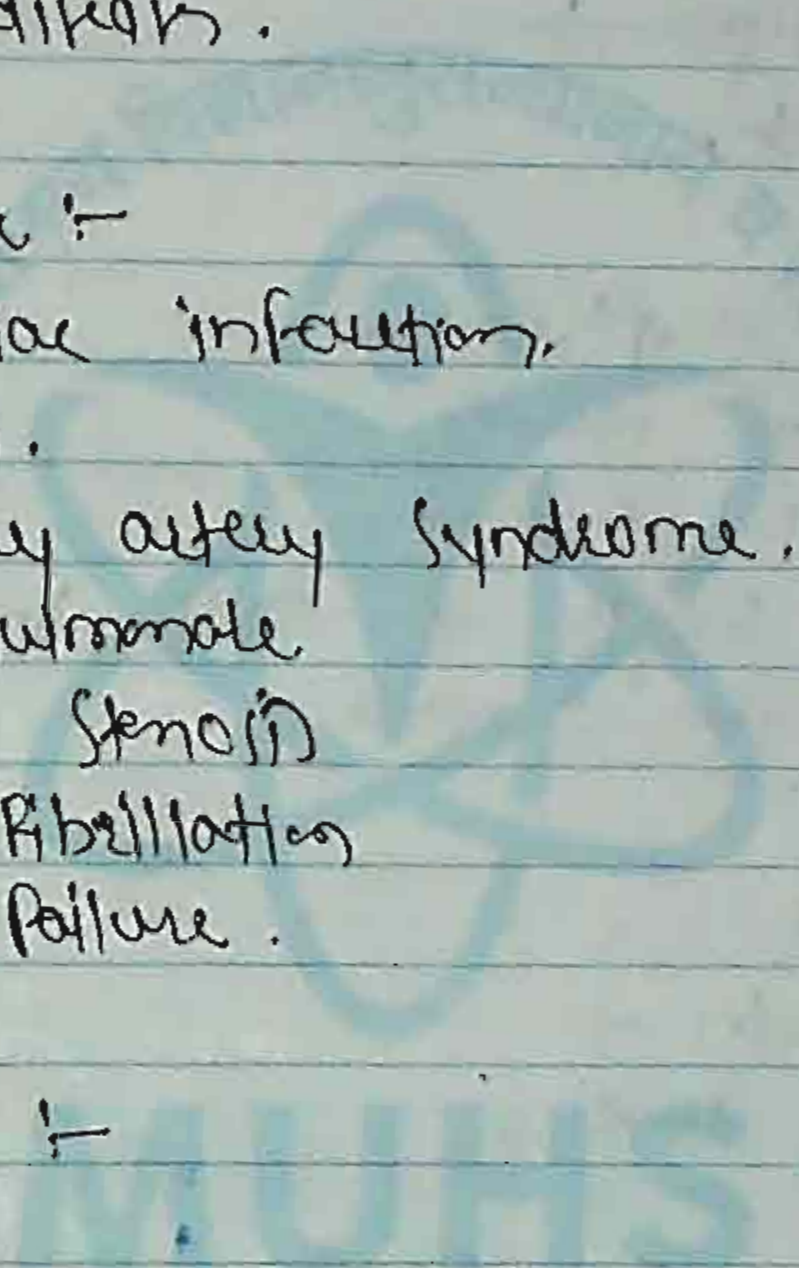 :-
infarction.
.
artery Syndrome.
ulmonale.
Stenosis
Fibrillation
Failure.
:-
MUHS